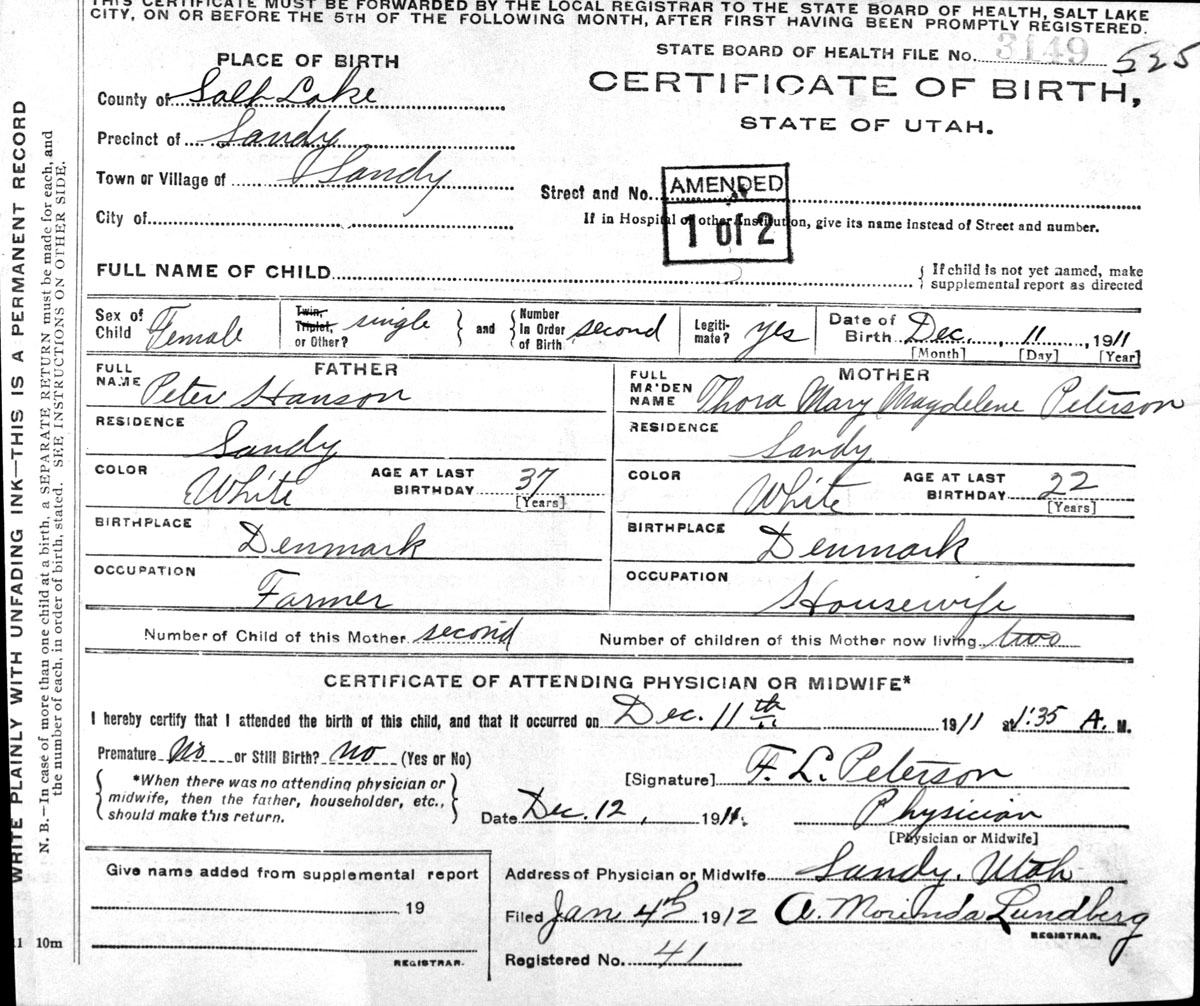 THIS CERTIFICATE MUST BE FORWARDED BY THE LOCAL REGISTRAR TO THE STATE BOARD OF HEALTH, SALT LAKE
CITY, ON OR BEFORE THE 5TH OF THE FOLLOWING MONTH, AFTER FIRST HAVING BEEN PROMPTLY REGISTERED.
STATE BOARD OF HEALTH FILE No. 3149 525
PLACE OF BIRTH
CERTIFICATE OF BIRTH,
STATE OF UTAH.
County of Salt Lake
Precinct of Sandy
Town or Village of Sandy
City of
Street and No.
AMENDED
1 of 2
If in Hospital or other Institution, give its name instead of Street and number.
FULL NAME OF CHILD
{ If child is not yet named, make
supplemental report as directed
Sex of Child Female
Twin, Triplet, or Other? single } and { Number In Order of Birth second
Legiti-mate? yes
Date of Birth Dec. 11, 1911
[Month] [Day] [Year]
FATHER
FULL NAME Peter Hanson
RESIDENCE Sandy
COLOR White AGE AT LAST BIRTHDAY 37 [Years]
BIRTHPLACE Denmark
OCCUPATION Farmer
MOTHER
FULL MA'DEN NAME Thora Mary Magdelene Peterson
RESIDENCE Sandy
COLOR White AGE AT LAST BIRTHDAY 22 [Years]
BIRTHPLACE Denmark
OCCUPATION Housewife
Number of Child of this Mother second Number of children of this Mother now living two
CERTIFICATE OF ATTENDING PHYSICIAN OR MIDWIFE*
I hereby certify that I attended the birth of this child, and that it occurred on Dec. 11th 1911 at 1:35 A. M.
Premature No or Still Birth? no (Yes or No)
{ *When there was no attending physician or
midwife, then the father, householder, etc.,
should make this return. }
[Signature] F. L. Peterson
Date Dec. 12, 1911. Physician
[Physician or Midwife]
Address of Physician or Midwife Sandy, Utah
Filed Jan 4th 1912 A. Morinda Lundberg
REGISTRAR.
Registered No. 41
Give name added from supplemental report
19
REGISTRAR.
WRITE PLAINLY WITH UNFADING INK—THIS IS A PERMANENT RECORD
N. B.—In case of more than one child at a birth, a SEPARATE RETURN must be made for each, and
the number of each, in order of birth, stated. SEE INSTRUCTIONS ON OTHER SIDE.
10m